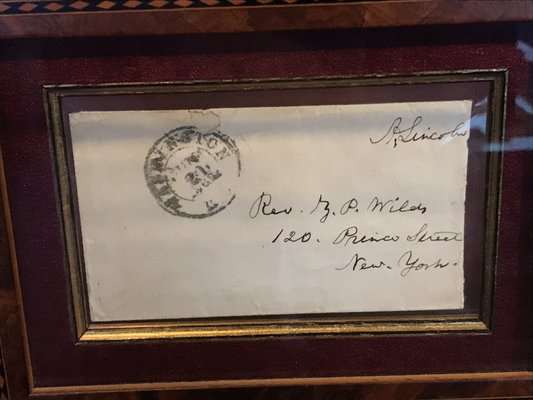 A. Lincoln
Rev. Z. P. Wilds
120. Prince Street
New. York.